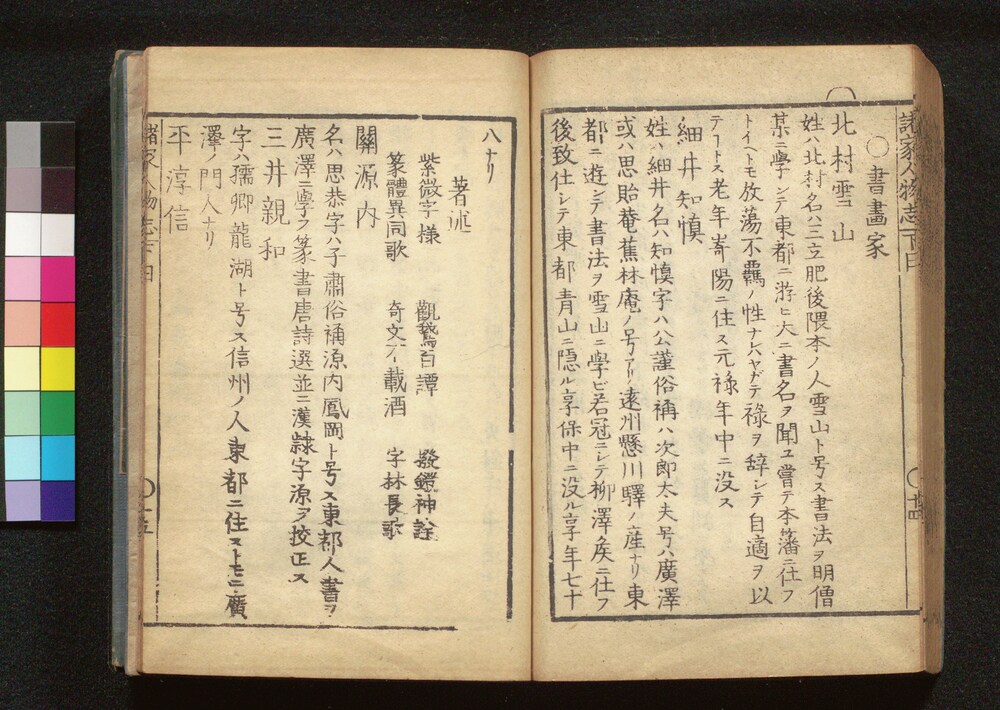 諸家人物志下
〇書畫家
北村雪山
姓ハ北村名ハ三立肥後隈本ノ人雪山ト号ス書法ヲ明僧
某ニ學ンテ東都ニ游ヒ大ニ書名ヲ聞ユ嘗テ本藩ニ仕フ
トイヘトモ放蕩不羈ノ性ナレハヤガテ祿ヲ辞シテ自適ヲ以
テートス老年嵜陽ニ住ス元祿年中ニ没ス
細井知慎
姓ハ細井名ハ知慎字ハ公謹俗稱ハ次郎太夫号ハ廣澤
或ハ思貽菴蕉林庵ノ号アリ遠州懸川驛ノ産ナリ東
都ニ遊ンテ書法ヲ雪山ニ學ビ若冠ニシテ柳澤矦ニ仕フ
後致仕シテ東都青山ニ隠ル享保中ニ没ル享年七十
十四
八ナリ
著述
紫微字様 觀鵞百譚 撥鐙神詮
篆體異同歌 奇文不載酒 字林長歌
關源内
名ハ思恭字ハ子肅俗稱源内鳳岡ト号ス東都人書ヲ
廣澤ニ學フ篆書唐詩選並ニ漢隸字源ヲ挍正ス
三井親和
字ハ孺卿龍湖ト号ス信州ノ人東都ニ住ストモニ廣
澤ノ門人ナリ
平淳信
諸家人物志下
十五